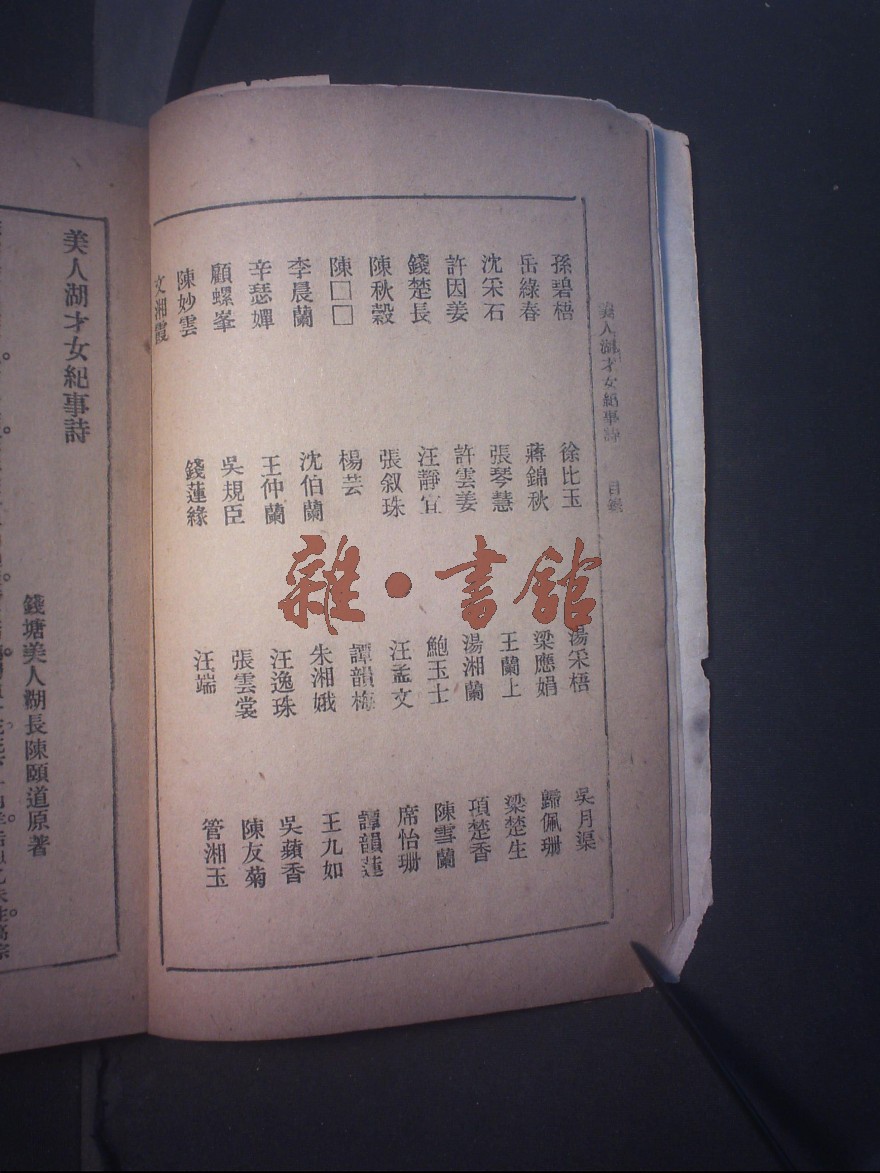 美人湖才女紀事詩　目錄
孫碧梧　徐比玉　湯采梧　吳月渠
岳綠春　蔣錦秋　梁應娟　歸佩珊
沈采石　張琴慧　王蘭上　梁楚生
許因姜　許雲姜　湯湘蘭　項楚香
錢楚長　汪靜宜　鮑玉士　陳雪蘭
陳秋穀　張叙珠　汪孟文　席怡珊
陳□□　楊芸　譚韻梅　譚韻蓮
李晨蘭　沈伯蘭　朱湘娥　王九如
辛瑟嬋　王仲蘭　汪逸珠　吳蘋香
顧螺峯　吳規臣　張雲裳　陳友菊
陳妙雲　錢蓮緣　汪端　管湘玉
文湘霞
美人湖才女紀事詩
錢塘美人湖長陳頤道原著
雜·書館